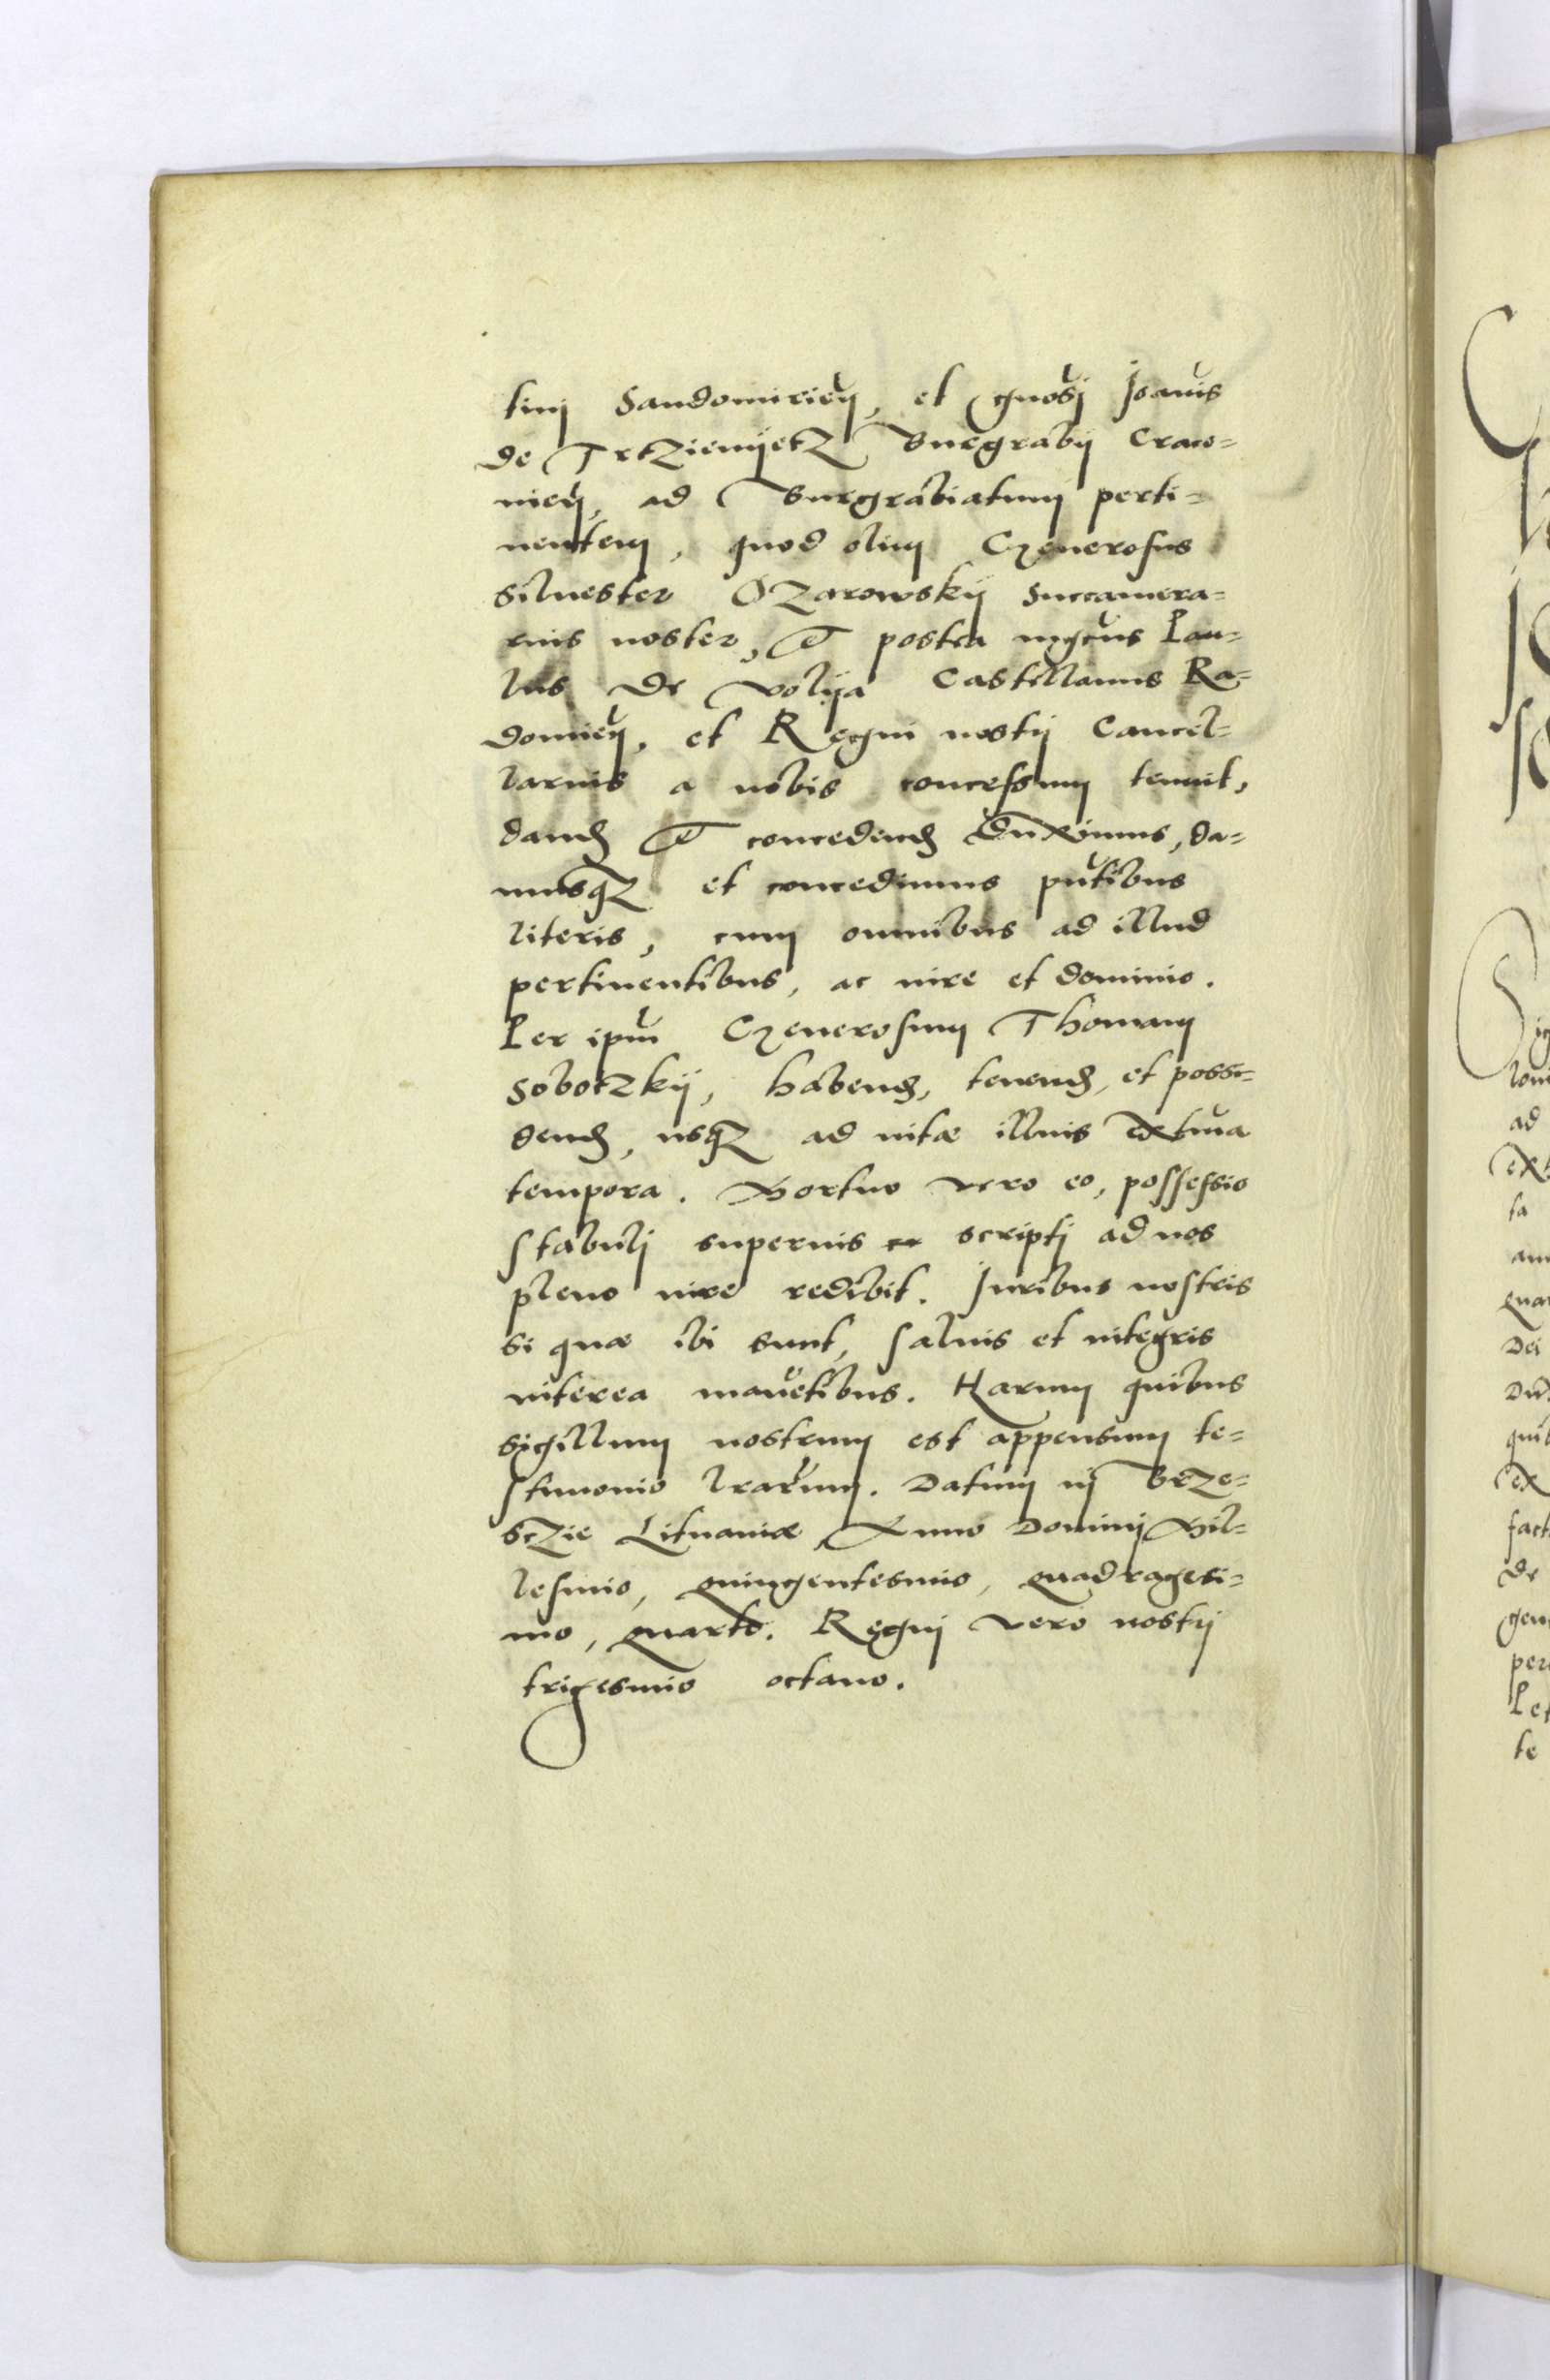 tini Sandomirien̄, et gn̄osi Joan̄is
de Trtziemyetz Burgrabij Craco-
nien̄, ad Burgrabiatum perti-
nentem, quod olim Generosus
Siluester Ozarowskij Succamera-
rius noster, et postea mgcūs Pau-
lus de Volija Castellanus Ra-
domien̄, et Regni nostrj Cancel-
larius a nobis concessum tenuit,
dand et concedend duximus, da-
musqz et concedimus pn̄tibus
literis, cum omnibus ad illud
pertinentibus, ac iure et dominio.
Per ipm̄ Generosum Thomam
Sobotzkij, habend, tenend, et possi-
dend, usqz ad uitæ illius extm̄a
tempora. Mortuo vero eo, possessio
stabulj superius scriptj ad nos
pleno iure redibit. Juribus nostris
si quæ ibi sunt, saluis et integris
interea manētibus. Harum quibus
sigillum nostrum est appensum te-
stimonio lrārum. Datum in Brze-
sczie Lituaniæ, Anno Dominj Mil-
lesimo, quingentesimo, quadragesi-
mo, quarto. Regnj vero nostrj
trigesimo octauo.